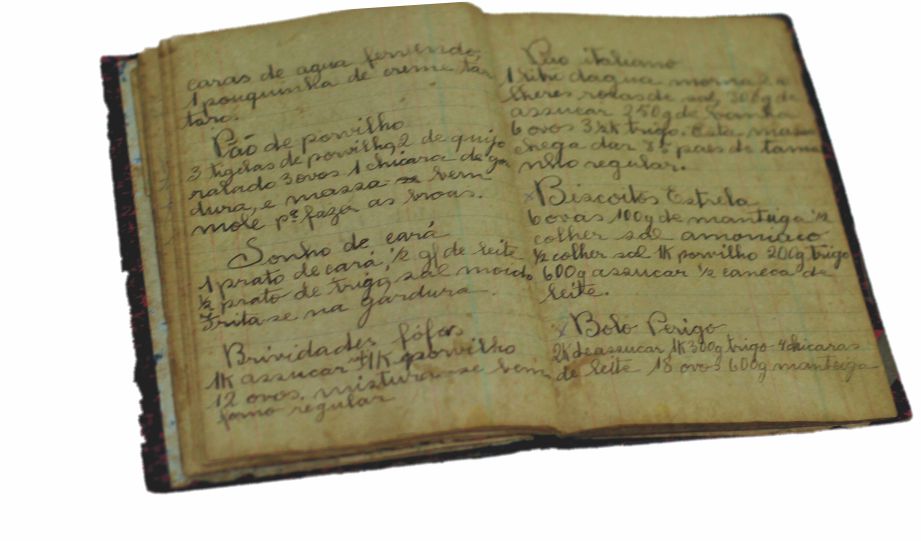 caras de agua fervendo,
1 pouquinho de creme tar
taro.
Pão de porvilho
3 tigelas de porvilho, 2 de quijo
ralado 3 ovos 1 chicara de go
dura, e massa bem
mole pª fazer as broas.
Sonho de cará
1 prato de cará, ½ gf de leite
½ prato de trigo, sal moido
Frita-se na gardura.
Brividades fófas
1K assucar 1K porvilho
12 ovos. mistura-se bem
forno regular
Pão italiano
1 dagua morna 2
lheres rasas de sal, 300g de
assucar 250g de banha
6 ovos 3½K trigo. Esta massa
chega dar 35 pães de tama
nho regular.
x Biscoitos Estrela
6 ovos 100g de manteiga ½
colher sal amoniaco
½ colher sal 1K porvilho 200g trigo
600g assucar ½ caneca de
leite.
x Bolo Perigo
2K de assucar 1K300g trigo 4 chicaras
de leite 18 ovos 600g manteiga